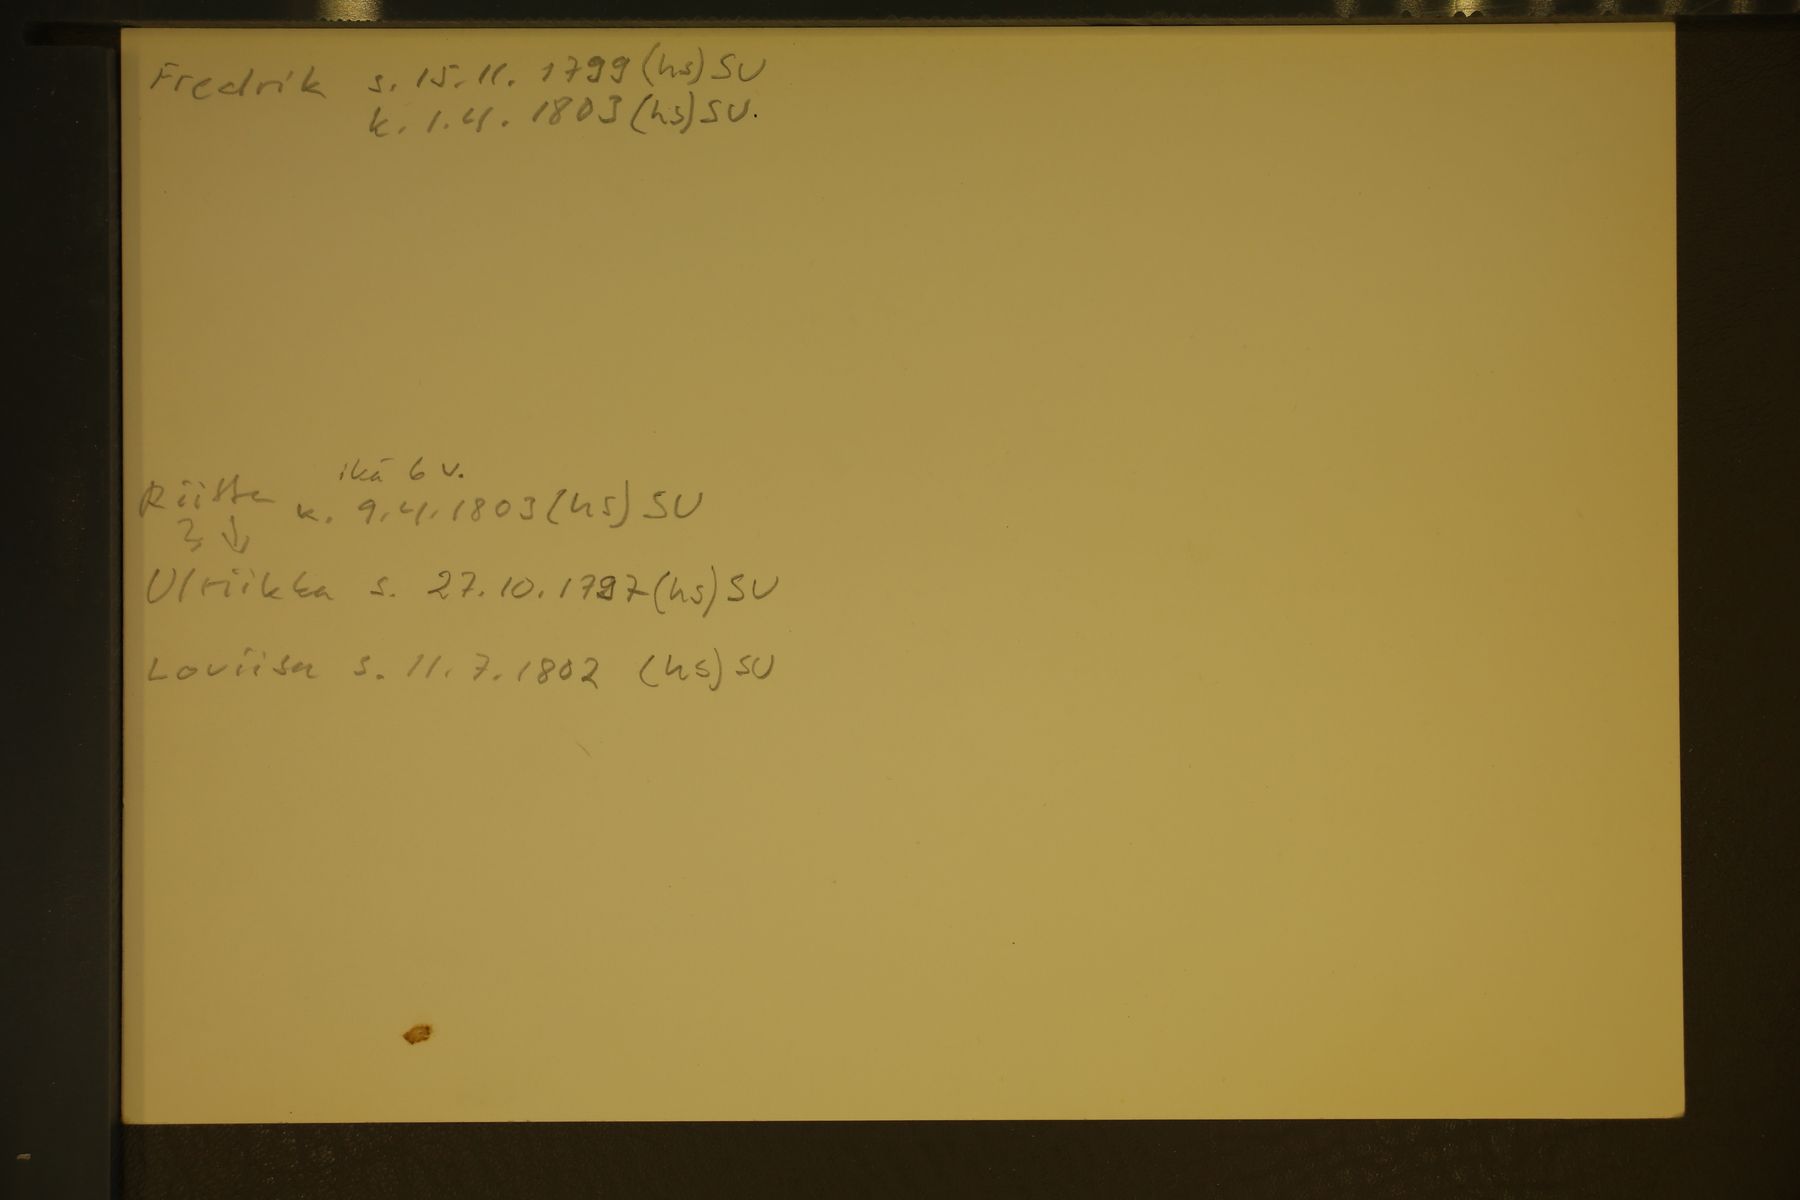 Fredrik s. 15.11. 1799 (hs) SU
k. 1.4. 1803 (hs) SU.
ikä 6 v.
Riitta k. 9.4.1803 (hs) SU
? ↓
Ulriikka s. 27.10.1797 (hs) SU
Loviisa s. 11.7.1802 (hs) SU